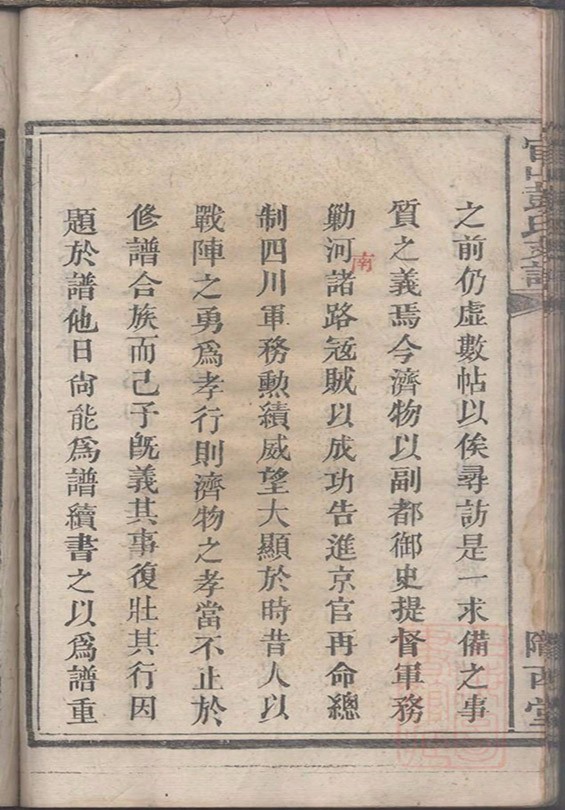 之前仍虛數帖以俟尋訪是一求備之事
質之義焉今濟物以副都御史提督軍務
勦河諸路冦賊以成功告進京官再命總
南
制四川軍務勲績威望大顯於時昔人以
戰陣之勇爲孝行則濟物之孝當不止於
修譜合族而已予旣義其事復壯其行因
題於譜他日尙能爲譜續書之以爲譜重
官山彭氏支譜
隴西堂